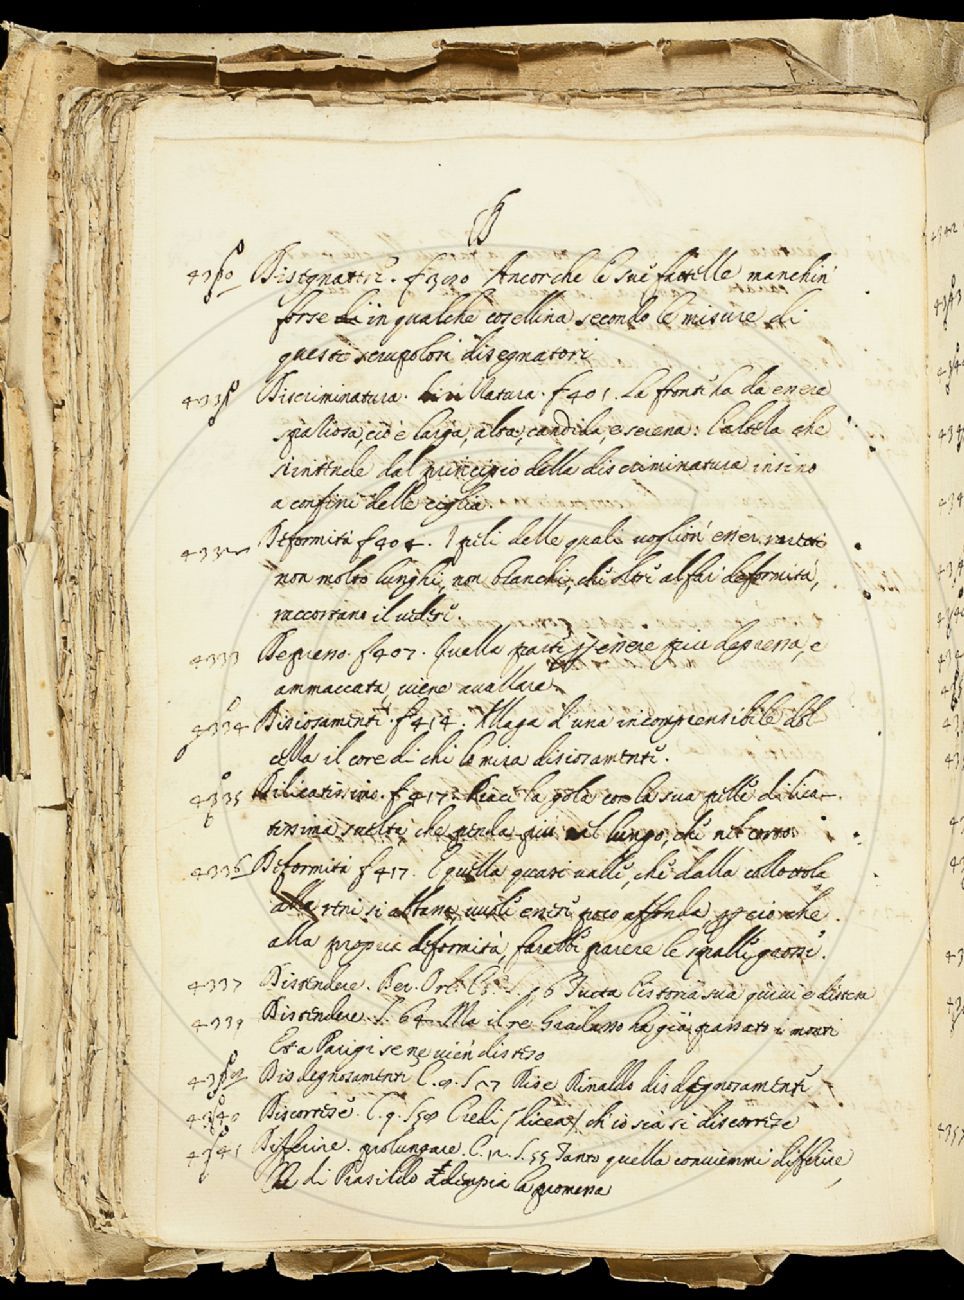 D
Disegnatori. f. Ancor che le sue fattelle manchin
forse in qualche cosellina secondo le misure di
questi scrupolosi disegnatori
Discriminatura. Natura. f 401. La fronte ha da essere
spatiosa, cio è larga, alta, candida, e serena: l'altezza che
s'intende dal principio della discriminatura insino
a confini delle ciglia.
Deformità f 404. I peli delle quali voglion' esser
non molto lunghi, non bianchi, che oltre al far deformità,
raccortano il vedere.
4333 Depresso. f 407. Quella parte essere piu depressa, e
ammaccata, viene avallare
4334 Disiosamente. f 414. Allaga d'una incomprensibile dol
cezza il core di chi la mira disiosamente.
4335 Dilicatissimo. f 417. Piace la gola con la sua pelle dilica
tissima svelta, che penda piu nel lungo, che nel corto.
4336 Deformità f 417. E quella quasi valle, che dalla collottola
reni si attane, vuole essere poco affonda che
alla propria deformità, farebbe parere le spalle grosse.
4337 Distendere. Ber. Orl. Tutta l'istoria sua quivi è distesa
4339 Distendere S. 64 Ma il re Gradasso ha già passato i monti
Et a Parigi se ne vien disteso
Disdegnosamente C. 9. S. Rise Rinaldo disdegnosamente
4340 Discortese. C. 9. S. Credi (dicea) ch'io sia sì discortese
4341 Differire. prolungare. C. 12. S. 55 Tanto quella conviemmi differire,
di Prasildo Tidempia la promessa